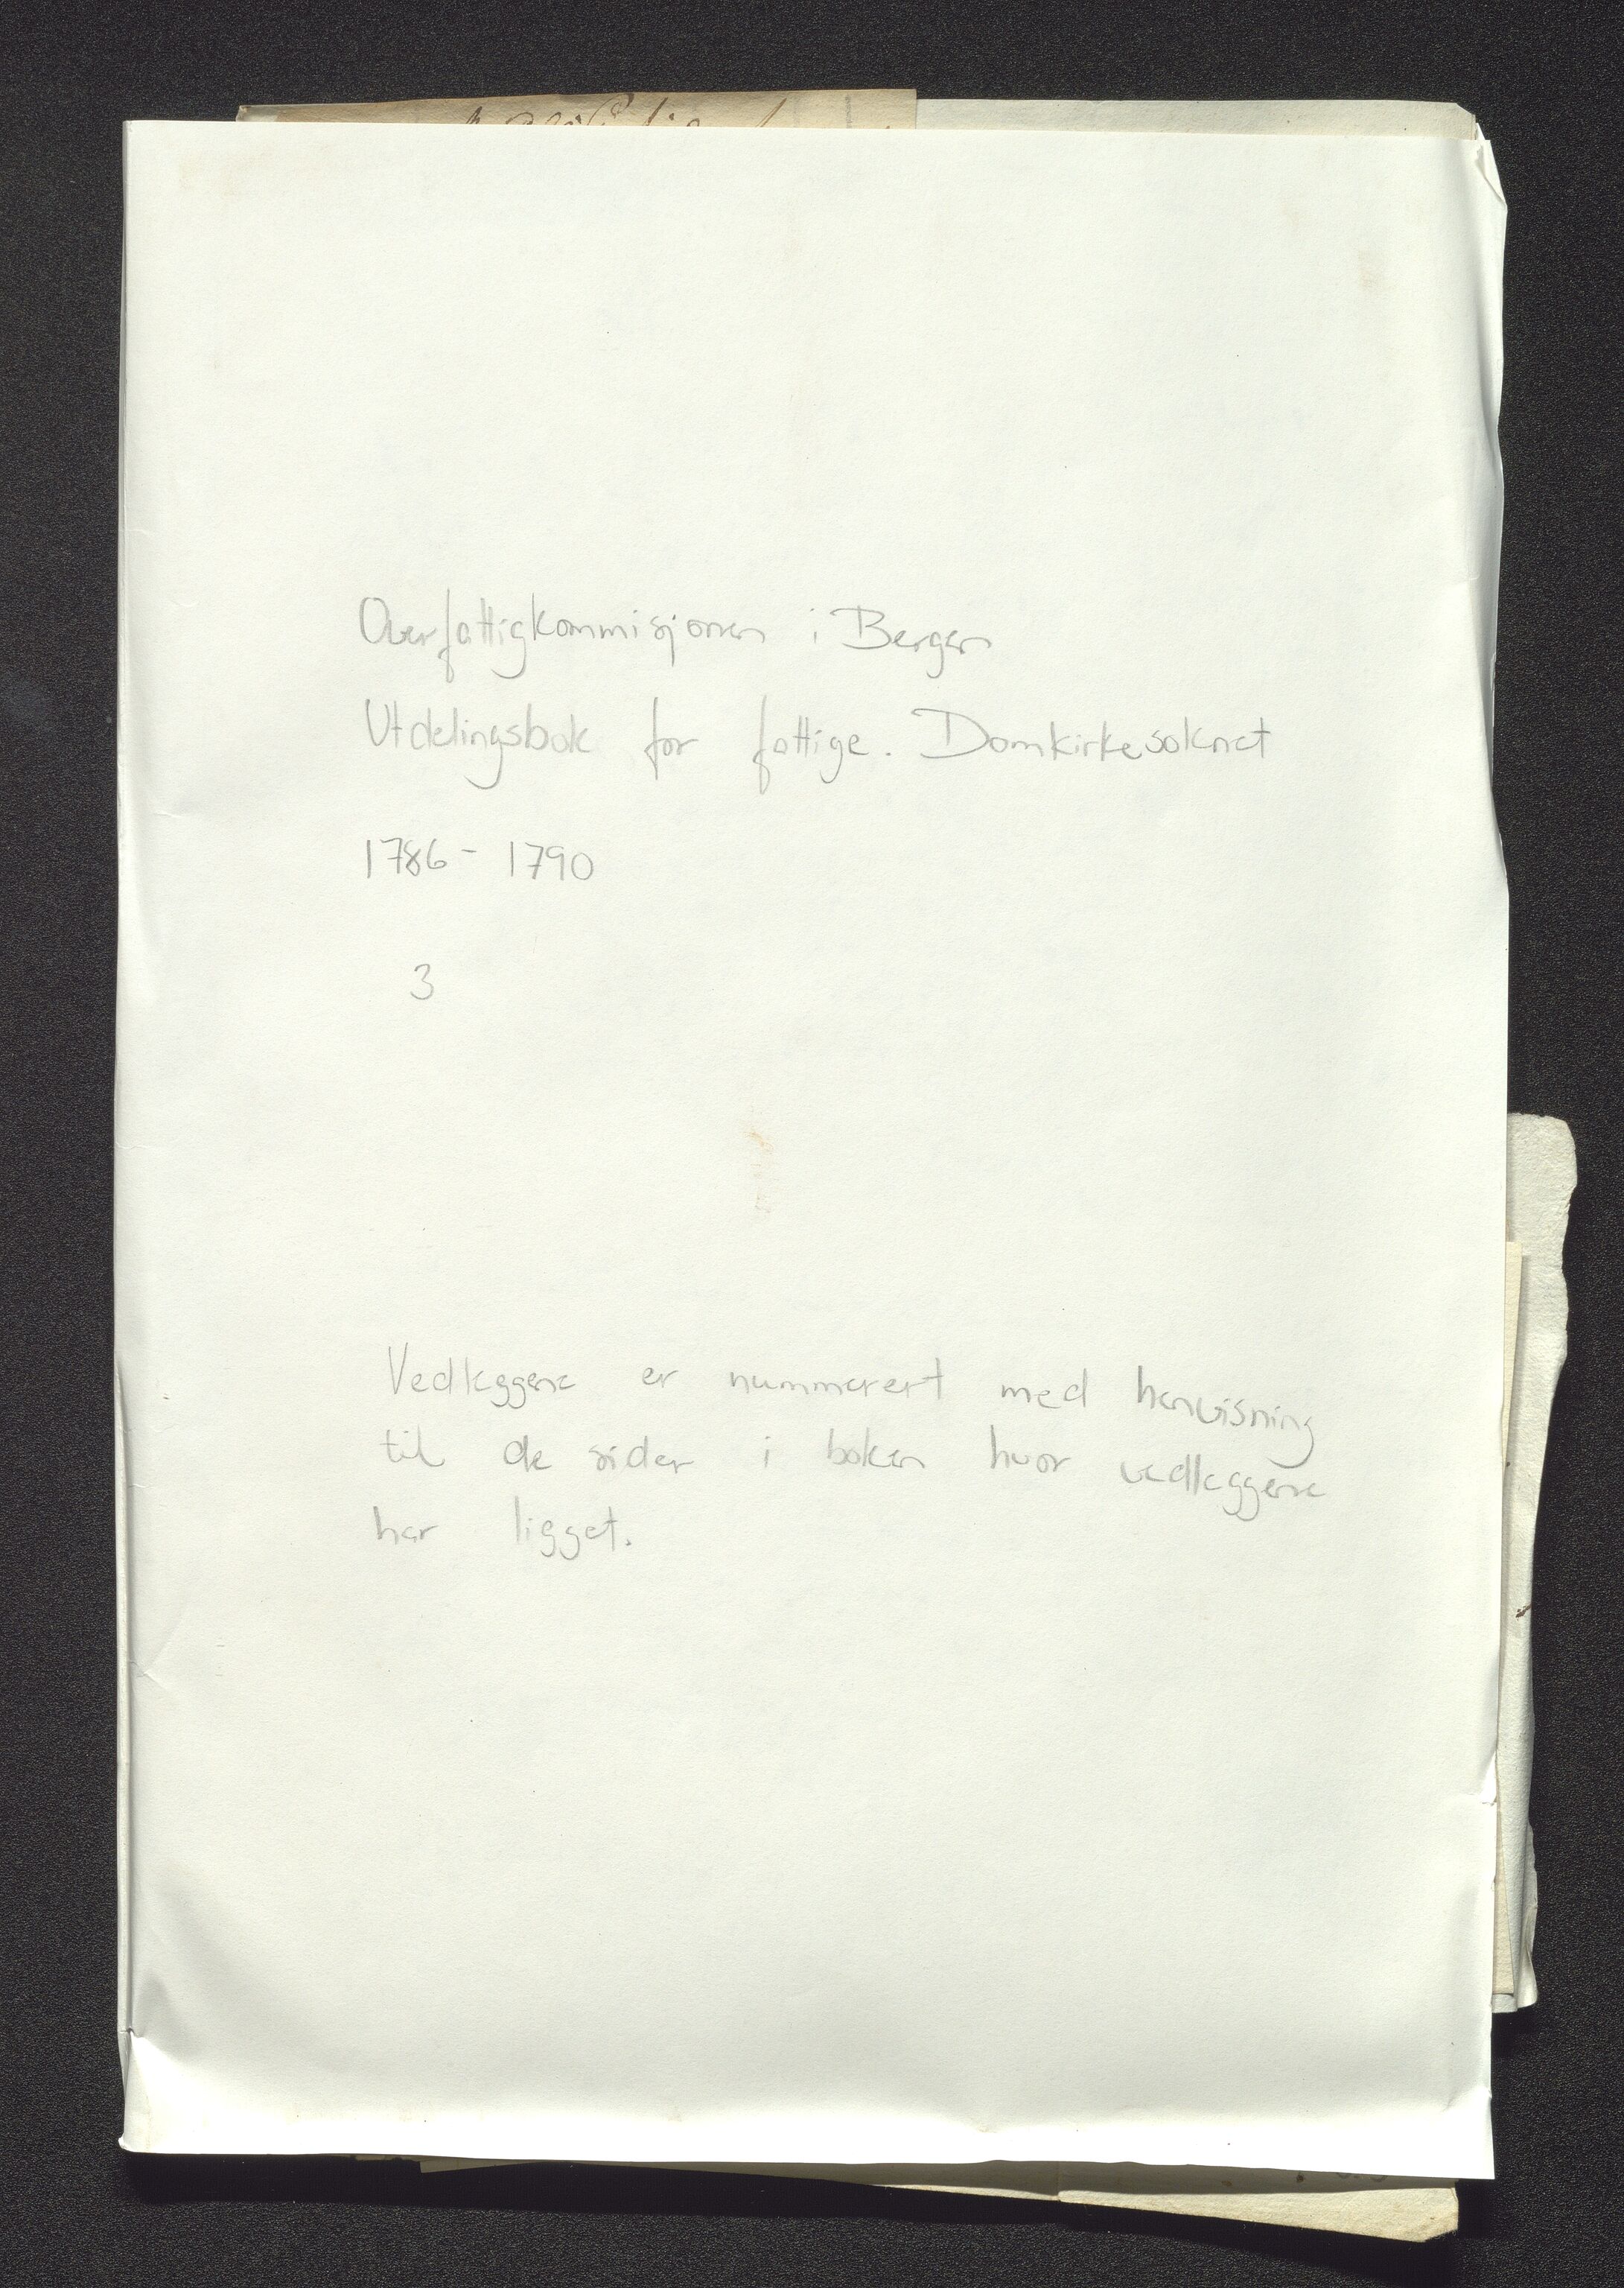 Overfattigkommisjonen i Bergen
Utdelingsbok for fattige. Domkirkesoknet
1786 - 1790
3
Vedleggene er nummerert med henvisning
til de sider i boken hvor vedleggene
har ligget.